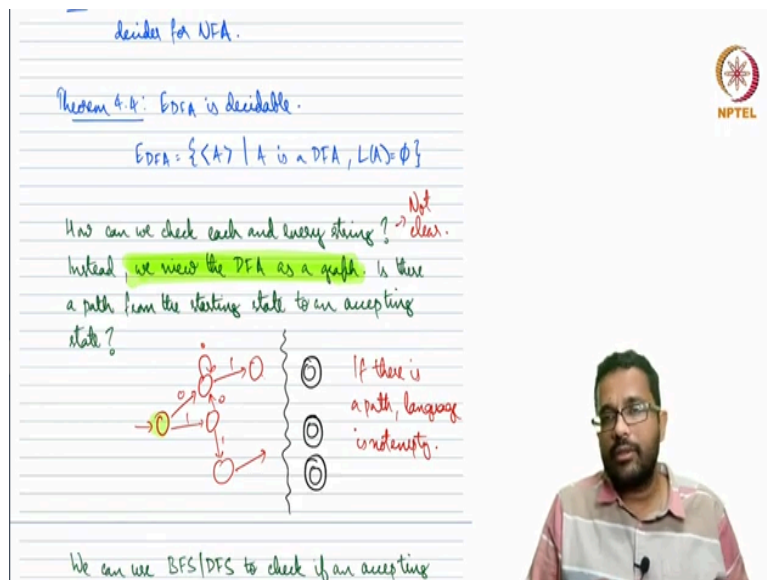 decider for NFA.
NPTEL
Theorem 4.4: EDFA is decidable.
EDFA = {<A> | A is a DFA, L(A)=ϕ}
How can we check each and every string? → Not clear.
Instead, we view the DFA as a graph. Is there
a path from the starting state to an accepting
state?
0
1
1
0
1
If there is
a path, language
is not empty.
We can use BFS/DFS to check if an accepting